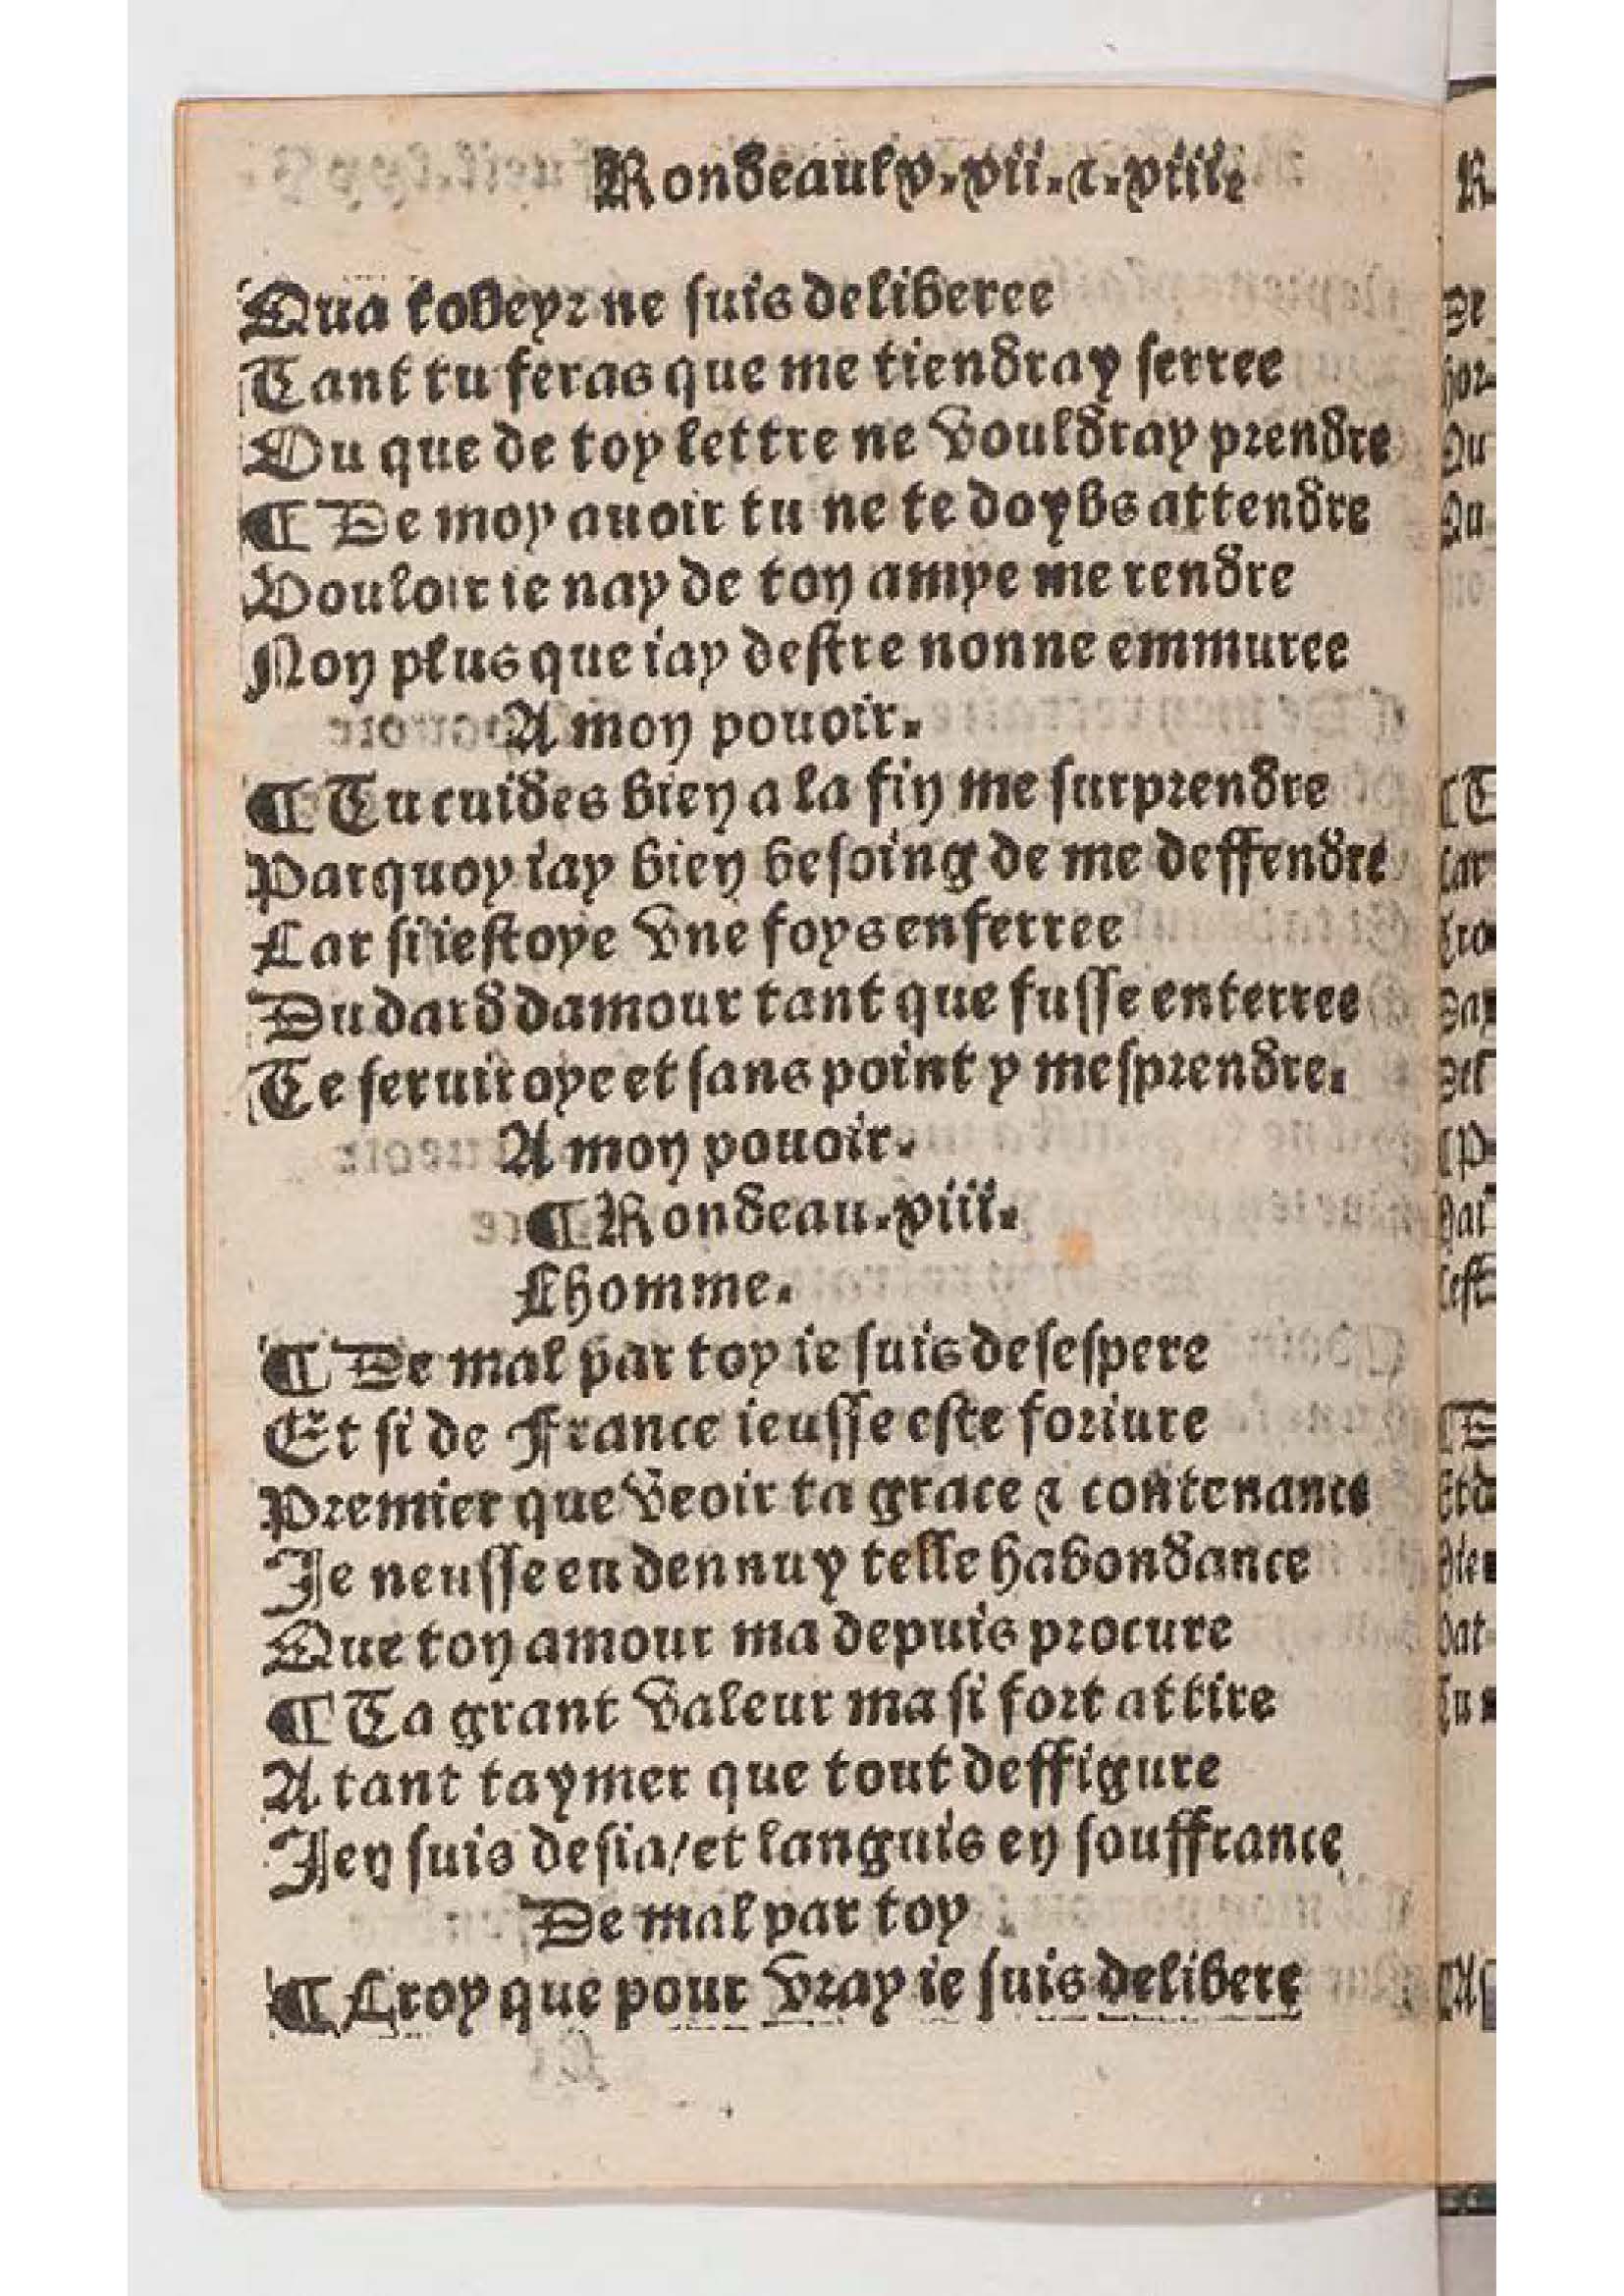 Rondeaulx.vii.⁊.viii.
Qua tobeyr ne suis deliberee
Tant tu feras que me tiendray serree
Ou que de toy lettre ne vouldray prendre
¶ De moy auoir tu ne te doybs attendre
Vouloir ie nay de ton amye me rendre
Non plus que iay destre nonne emmuree
A mon pouoir.
¶ Tu cuides bien a la fin me surprendre
Parquoy iay bien besoing de me deffendre
Car si iestoye vne foys enferree
Du dard damour tant que fusse enterree
Te seruiroye et sans point y mesprendre.
A mon pouoir.
¶ Rondeau.viii.
Lhomme.
¶ De mal par toy ie suis desespere
Et si de France ieusse este foriure
Premier que veoir ta grace ⁊ contenance
Je neusse eu dennuy telle habondance
Que ton amour ma depuis procure
¶ Ta grant valeur ma si fort attire
A tant taymer que tout deffigure
Jen suis desia/et languis en souffrance
De mal par toy
¶ Croy que pour vray ie suis delibere